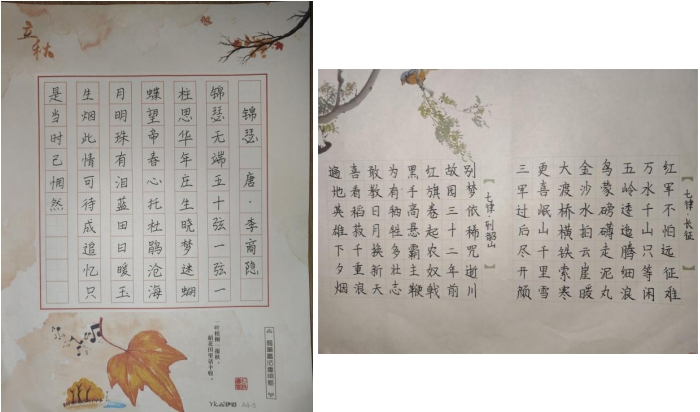 立秋
锦瑟 唐·李商隐
锦瑟无端五十弦一弦一
柱思华年庄生晓梦迷蝴
蝶望帝春心托杜鹃沧海
月明珠有泪蓝田日暖玉
生烟此情可待成追忆只
是当时已惘然
七律 长征
红军不怕远征难
万水千山只等闲
五岭逶迤腾细浪
乌蒙磅礴走泥丸
金沙水拍云崖暖
大渡桥横铁索寒
更喜岷山千里雪
三军过后尽开颜
七律 到韶山
别梦依稀咒逝川
故园三十二年前
红旗卷起农奴戟
黑手高悬霸主鞭
为有牺牲多壮志
敢教日月换新天
喜看稻菽千重浪
遍地英雄下夕烟